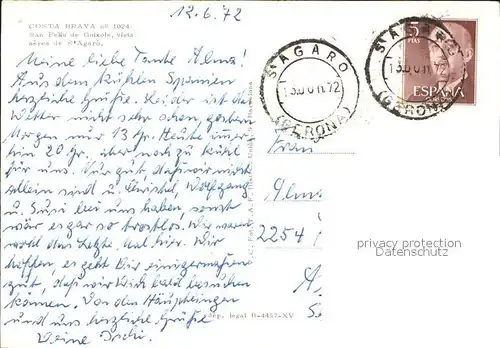 12.6.72
COSTA BRAVA nº 1024
San Feliu de Guixols, vista
aérea de S'Agaró.
Meine liebe Tante Alma!
Aus dem kühlen Spanien
herzliche Grüße. Leider ist das
Wetter nicht sehr schön, gestern
Morgen nur 13 Gr. Heute immer-
hin 20 Gr., aber noch zu kühl
für uns. Nur gut, daß wir nicht
allein sind u. Christel, Wolfgang
u. Susi bei uns haben, sonst
wär es gar so trostlos. Wir waren
wohl das letzte Mal hier. Wir
hoffen, es geht Dir einigermaßen
gut, daß wir Dich bald besuchen
können. Von den
und uns herzliche Grüße
Deine
dep. legal B-4457-XV
S'AGARO
13 JUN 72
(GERONA)
5
PTAS
ESPAÑA
S'AGARO
(GERONA)
Frau
Alma
2254
proprietary copyright
Datenschutz